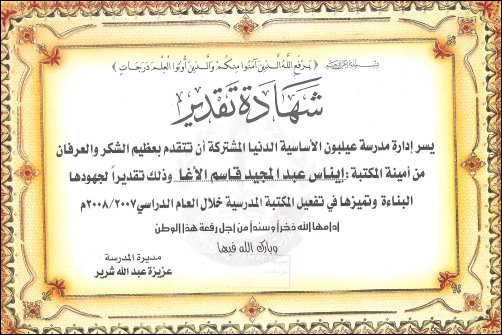 بسم الله الرحمن الرحيم ﴿ يَرْفَعِ اللَّهُ الَّذِينَ آمَنُوا مِنكُمْ وَالَّذِينَ أُوتُوا الْعِلْمَ دَرَجَاتٍ ﴾
شهادة تقدير
يسر إدارة مدرسة عيلبون الأساسية الدنيا المشتركة أن تتقدم بعظيم الشكر والعرفان
من أمينة المكتبة : إيناس عبد المجيد قاسم الأغا وذلك تقديراً لجهودها
البناءة وتميزها في تفعيل المكتبة المدرسية خلال العام الدراسي ٢٠٠٨/٢٠٠٧م
أدامها الله فخراً وسنداً من أجل رفعة هذا الوطن
وبارك الله فيها
مديرة المدرسة
عزيزة عبد الله شرير